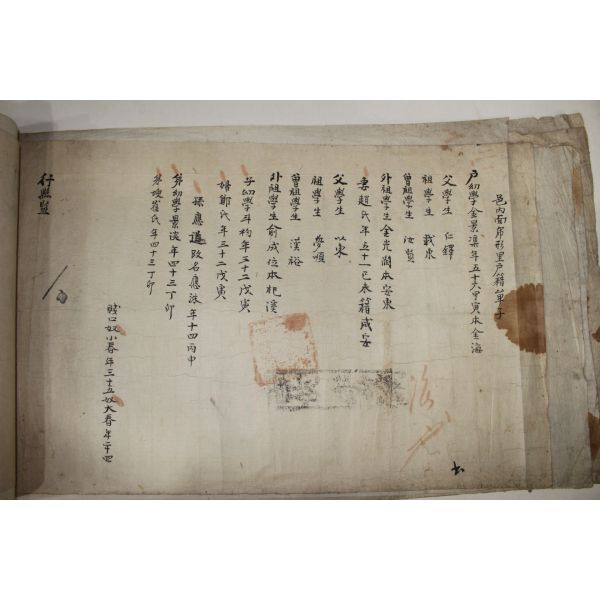 邑內面席形里戶籍單子
戶幼學金景渫年五十六甲寅本金海
父學生 仁鐸
祖學生 載東
曾祖學生 汝貲
外祖學生金光潤本安東
妻趙氏年五十一己未籍咸安
父學生 以東
祖學生 夢順
曾祖學生 漢裕
外祖學生俞成位本杞溪
子幼學斗杓年三十二戊寅
婦鄭氏年三十二戊寅
孫應 改名應洙年十四丙申
弟幼學景 年四十三丁卯
弟嫂崔氏年四十三丁卯
賤口奴小春年三十五奴大春年二十四
行縣監